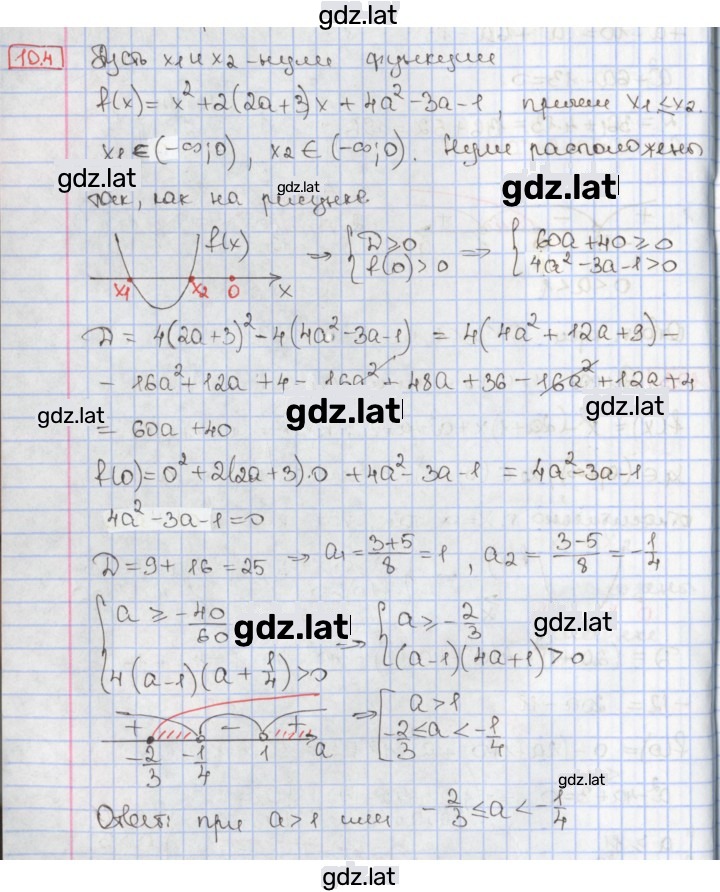 gdz.lat
10.4 Пусть x1 и x2 - нули функции
f(x) = x² + 2(2a+3)x + 4a² - 3a - 1, причем x1 ≤ x2.
x1 ∈ (-∞;0), x2 ∈ (-∞;0). Нули расположены
gdz.lat gdz.lat gdz.lat
так, как на рисунке
f(x) x1 x2 0 x ⇒ { D ≥ 0 f(0) > 0 ⇒ { 60a + 40 ≥ 0 4a² - 3a - 1 > 0
D = 4(2a+3)² - 4(4a² - 3a - 1) = 4(4a² + 12a + 9) -
- 16a² + 12a + 4 = 16a² + 48a + 36 - 16a² + 12a + 4
gdz.lat gdz.lat gdz.lat
= 60a + 40
f(0) = 0² + 2(2a+3)·0 + 4a² - 3a - 1 = 4a² - 3a - 1
4a² - 3a - 1 = 0
D = 9 + 16 = 25 ⇒ a1 = (3+5)/8 = 1, a2 = (3-5)/8 = -1/4
{ a ≥ -40/60 4(a-1)(a + 1/4) > 0 ⇒ { a ≥ -2/3 (a-1)(4a+1) > 0
gdz.lat gdz.lat
+ - + -2/3 -1/4 1 a ⇒ [ a > 1 -2/3 ≤ a < -1/4
gdz.lat
Ответ: при a > 1 или -2/3 ≤ a < -1/4
gdz.lat